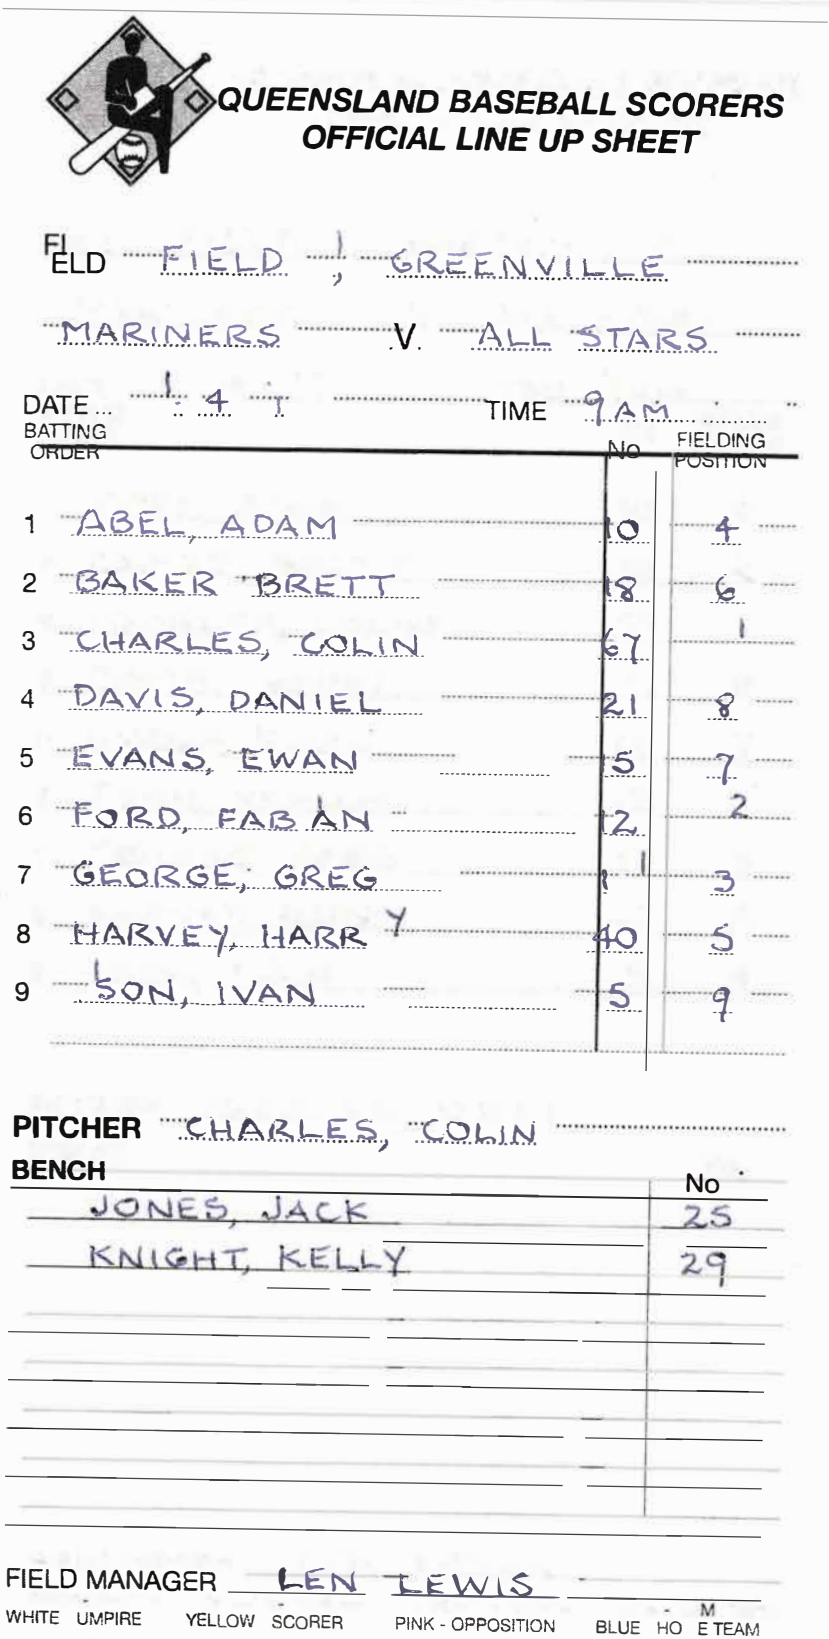 QUEENSLAND BASEBALL SCORERS
OFFICIAL LINE UP SHEET
FIELD FIELD 1, GREENVILLE
MARINERS V. ALL STARS
DATE... 1. 4 1 TIME 9AM
BATTING ORDER No FIELDING POSITION
1 ABEL, ADAM 10 4
2 BAKER BRETT 18 6
3 CHARLES, COLIN 67 1
4 DAVIS, DANIEL 21 8
5 EVANS, EWAN 15 7
6 FORD, FABIAN 12 2
7 GEORGE, GREG 11 3
8 HARVEY, HARRY 40 5
9 ISON, IVAN 5 9
PITCHER CHARLES, COLIN
BENCH No
JONES, JACK 25
KNIGHT, KELLY 29
FIELD MANAGER LEN LEWIS
WHITE UMPIRE YELLOW SCORER PINK - OPPOSITION BLUE HOME TEAM